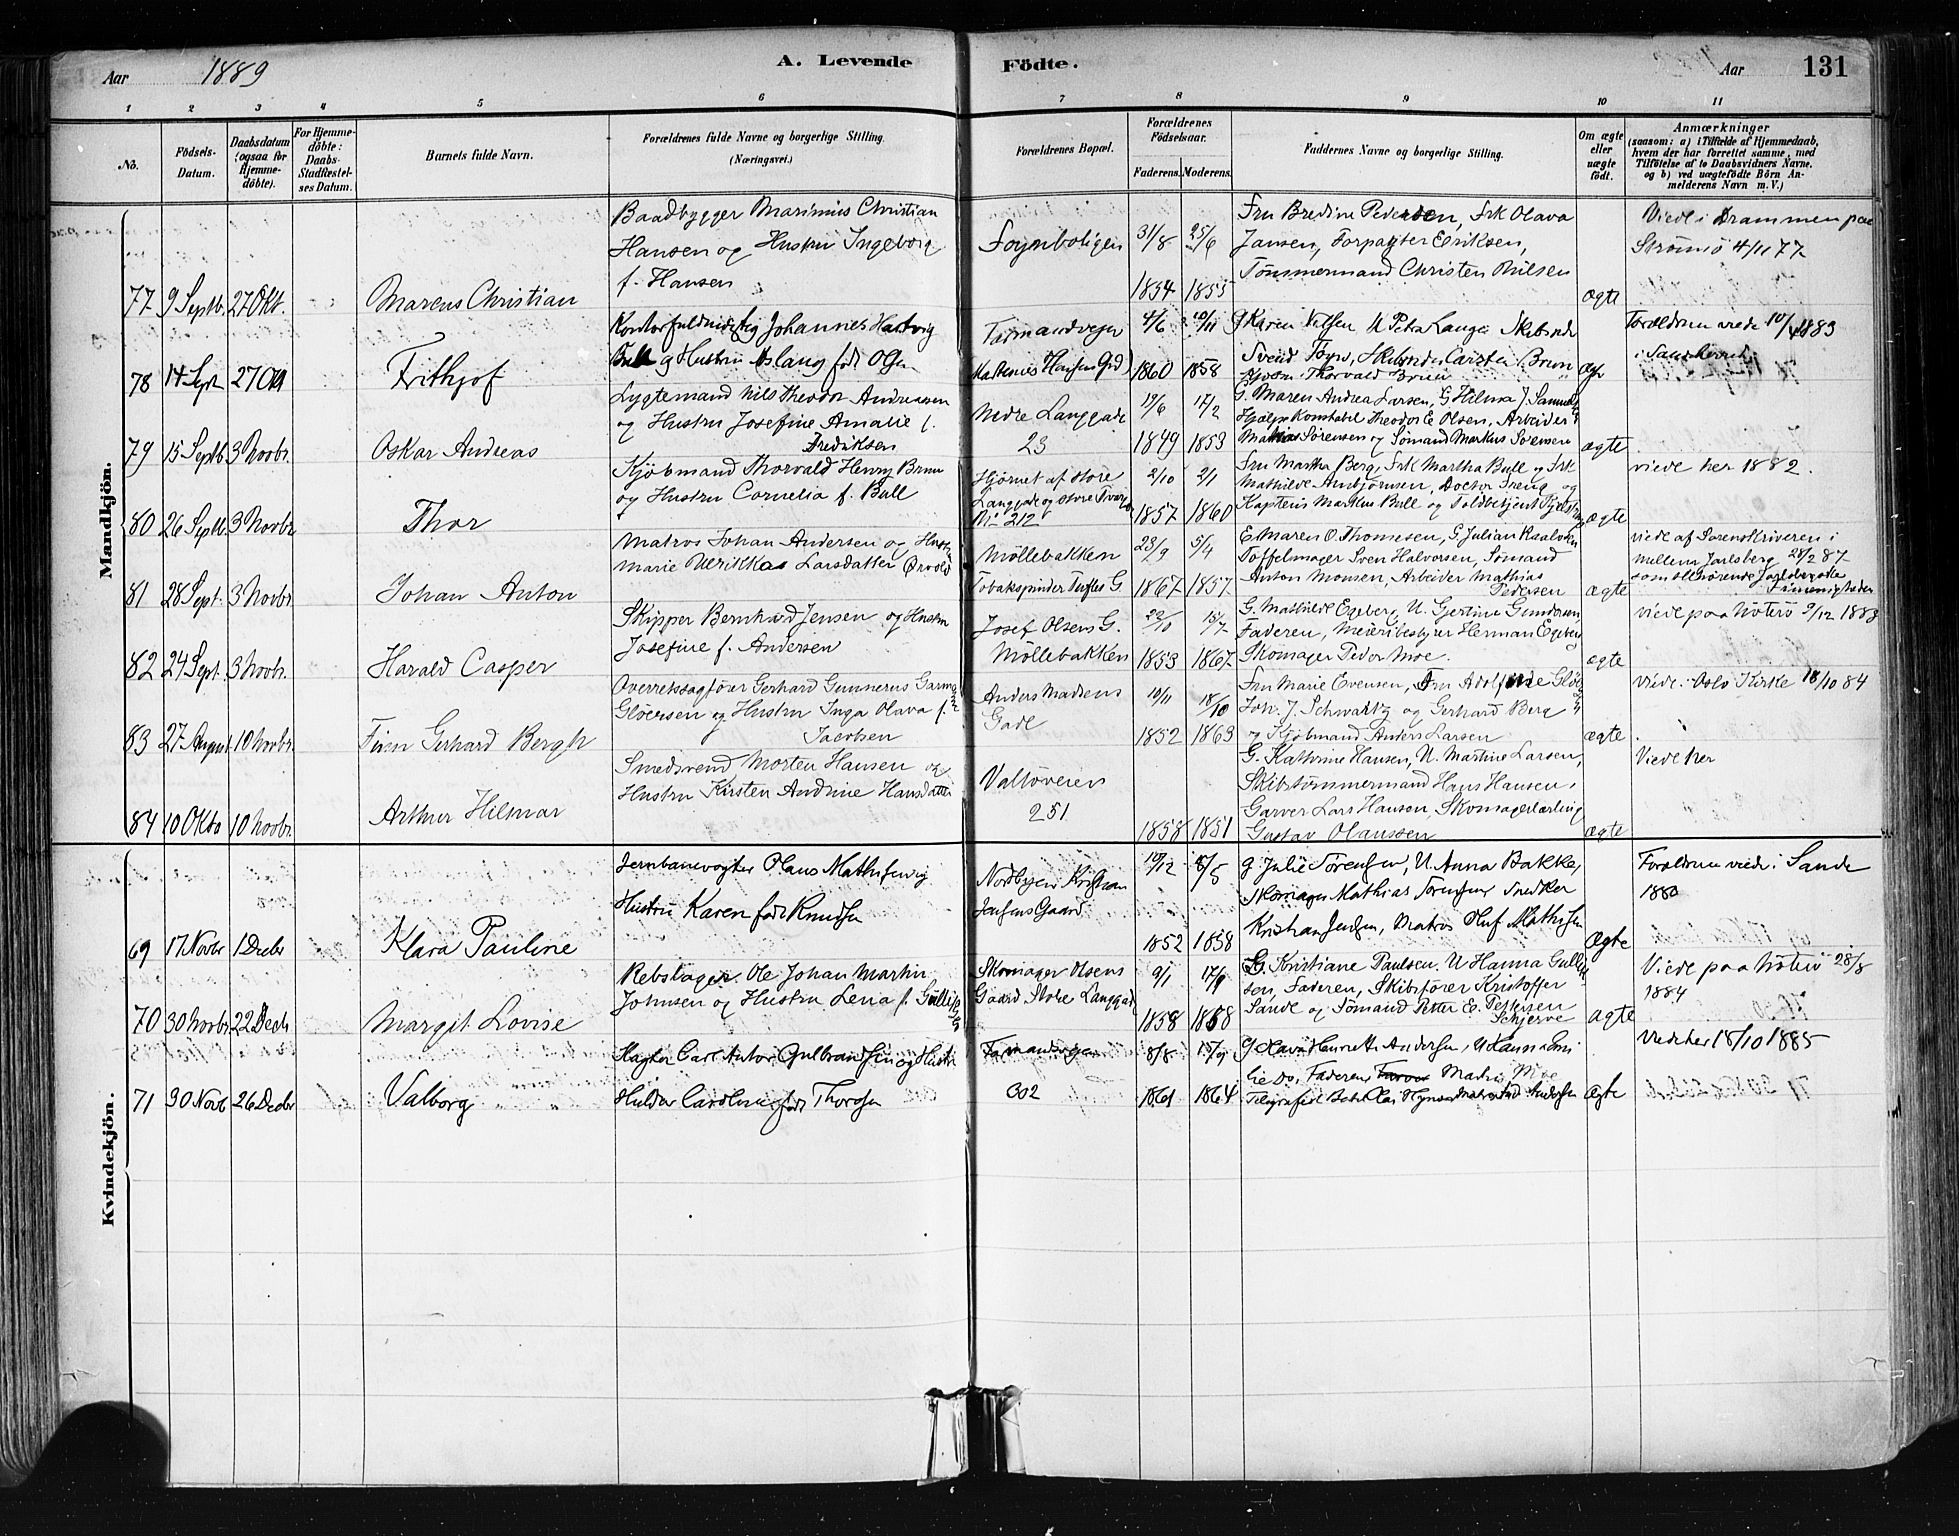 Aar 1889 A. Levende Födte. Aar 131
1 2 3 4 5 6 7 8 9 10 11
Nö.
Födsels-Datum.
Daabsdatum (ogsaa for Hjemme-döbte).
For Hjemme-döbte: Daabs-Stadfæstel-ses Datum.
Barnets fulde Navn.
Forældrenes fulde Navne og borgerlige Stilling.
(Næringsvei.)
Forældrenes Bopæl.
Forældrenes Födselsaar.
Faderens. Moderens.
Faddernes Navne og borgerlige Stilling.
Om ægte eller uægte födt.
Anmærkninger
(saasom: a) i Tilfælde af Hjemmedaab,
hvem der har forrettet samme, med
Tilföielse af to Daabsvidners Navne,
og b) ved uægtefödte Börn An-
melderens Navn m. V.)
Mandkjön.
77 9 Septb. 27 Okt.
Marcus Christian
Baadbygger Marinius Christian
Hansen og Hustru Ingeborg
f. Hansen
Foynboligen
31/8 1854
25/6 1855
Fru Bredine Pedersen, Frk Olava
Jansen, Forpagter Eriksen,
Tømmermand Christen Nilsen
ægte
Viede i Drammen paa
Strømsø 4/11 77
78 14 Sept 27 Okt
Frithjof
Kontorfuldmægtig Johannes Hartvig
Bull og Hustru Aslaug født Olsen
Farmandveien
4/6 1860
10/11 1858
G Karen Nilsen U Petra Lange
Svend Foyn, Carsten Bruun
Thorvald Bruun
Forældrene viede 10/4 1883
i Sandeherred
79 15 Septb 3 Novbr.
Oskar Andreas
Lygtemand Nils Theodor Andreassen
og Hustru Josefine Amalie f.
Fredriksen
Nedre Langgade
23
19/6 1849
17/2 1853
G. Maren Andrea Larsen, G Hilma J
Hjælpekonstabel Theodor E Olsen, Arbeider
Mathias Sørensen og Sømand Markus Svensen
ægte
80 26 Septb. 3 Novbr
Thor
Kjøbmand Thorvald Henry Bruun
og Hustru Cornelia f. Bull
Hjørnet af store
Langgade og store Tværg
No 212
2/10 1857
2/1 1860
Fru Martha Berg, Frk Martha Bull og Frk
Mathilde Anbjørnsen, Doctor Preng og
Kaptein Markus Bull og Toldbetjent
ægte
viede her 1882.
81 28 Sept. 3 Novbr
Johan Anton
Matros Johan Andersen og Hustru
Marie Ulrikka Larsdatter
Møllebakken
Tobakspinder Tuftes G.
23/9 1867
5/4 1857
E. Maren O. Thomesen, G. Julian
Tøffelmager Sven Halvorsen, Sømand
Anton Monsen, Arbeider Mathias
Pedersen
ægte
viede af Sorenskriveren i
mellem Jarlsberg 28/2 87
som tilhørende Jarlsbergske
Frimenigheder
82 24 Sept. 3 Novbr.
Harald Casper
Skipper Bernhard Jensen og Hustru
Josefine f. Andersen
Josef Olsens G.
Møllebakken
22/10 1853
15/7 1867
G. Mathilde Egeberg, U. Gjertine Gundersen
Faderen, Meieribestyrer Herman Egeberg
Skomager Peder Moe.
ægte
viede paa Nøterø 9/12 1883
83 27 August 10 Novbr.
Finn Gerhard Bergh
Overretssagfører Gerhard Gunnerus Garmann
Gløersen og Hustru Inga Olava f.
Jacobsen
Anders Madsens
Gade
10/11 1852
18/10 1863
Fru Marie Evensen, Fru Adolfine
Joh. J. Schwartz og Gerhard Berg
og Kjøbmand Anders Larsen
ægte
viede i Oslo Kirke 18/10 84
84 10 Oktb 10 Novbr.
Arthur Hilmar
Smedsvend Morten Hansen og
Hustru Kirsten Andrine Hansdatter
Valløveien
251
1858 1851
G. Kathrine Hansen, U. Martine Larsen,
Skibstømmermand Hans Hansen,
Garver Lars Hansen, Skomagerlærling
Gustav Olaussen
ægte
Viede her
Kvindekjön.
69 17 Novbr 1 Decbr
Klara Pauline
Jernbanevogter Olaus Mathisen og
Hustru Karen født Knudsen
Nordbyen Kristian
Jensens Gaard
10/12 1852
8/5 1858
G Julie Sørensen, U. Anna Bakke,
Skomager Mathias Sørensen Snedker
Kristian Jensen, Matros Oluf Mathisen
Ægte
Forældrene viede i Sande
1880
70 30 Novbr 22 Decb
Margit Lovise
Rebslager Ole Johan Martin
Johnsen og Hustru Lena f.
Skomager Olsens
Gaard Store Langgad
9/1 1858
1858
G. Kristiane Paulsen. U Hanna
sen, Faderen, Skibsfører Kristoffer
Sande og Sømand Petter E. Pettersen
Schjerve
ægte
Viede paa Nøterø 28/8
1884
71 30 Novb 26 Decbr
Valborg
Carl Anton Gulbrandsen og Hustru
Hulda Caroline født Thorsen
Farmandveien
302
8/8 1861
1864
G Henriette Andersen, U Hanna
Faderen Matros Moe
ægte
Viede her 18/10 1885